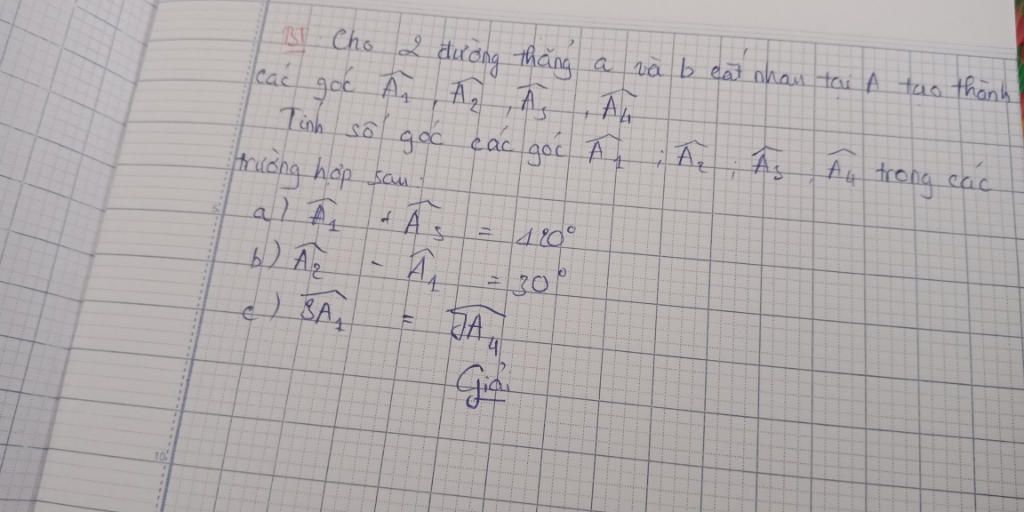 B1 Cho 2 đường thẳng a và b cắt nhau tại A tạo thành
các góc Â1, Â2, Â3, Â4
Tính số góc các góc Â1; Â2; Â3, Â4 trong các
trường hợp sau:
a) Â1 + Â3 = 120°
b) Â2 - Â1 = 30°
c) 3Â1 = 5Â4
Giải
10